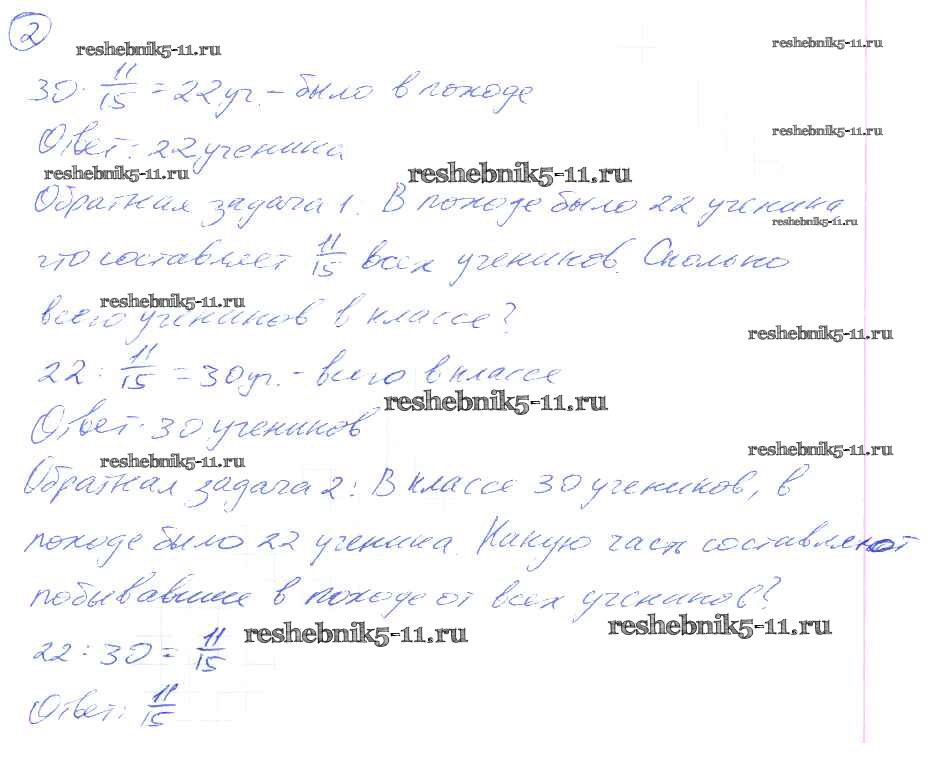 2
reshebnik5-11.ru
reshebnik5-11.ru
30 · 11/15 = 22 уч. – было в походе
reshebnik5-11.ru
Ответ: 22 ученика
reshebnik5-11.ru
reshebnik5-11.ru
Обратная задача 1. В походе было 22 ученика
reshebnik5-11.ru
что составляет 11/15 всех учеников. Сколько
reshebnik5-11.ru
всего учеников в классе?
reshebnik5-11.ru
22 : 11/15 = 30 уч. – всего в классе
reshebnik5-11.ru
Ответ: 30 учеников
reshebnik5-11.ru
reshebnik5-11.ru
Обратная задача 2: В классе 30 учеников, в
походе было 22 ученика. Какую часть составляют
побывавшие в походе от всех учеников?
reshebnik5-11.ru
reshebnik5-11.ru
22 : 30 = 11/15
Ответ: 11/15